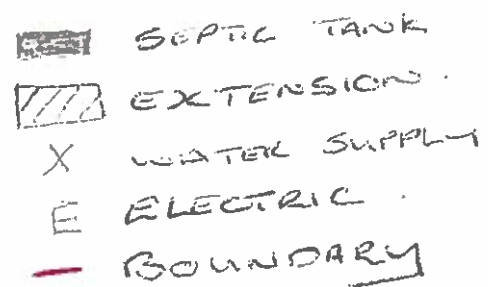 SEPTIC TANK
EXTENSION.
X WATER SUPPLY
E ELECTRIC.
BOUNDARY